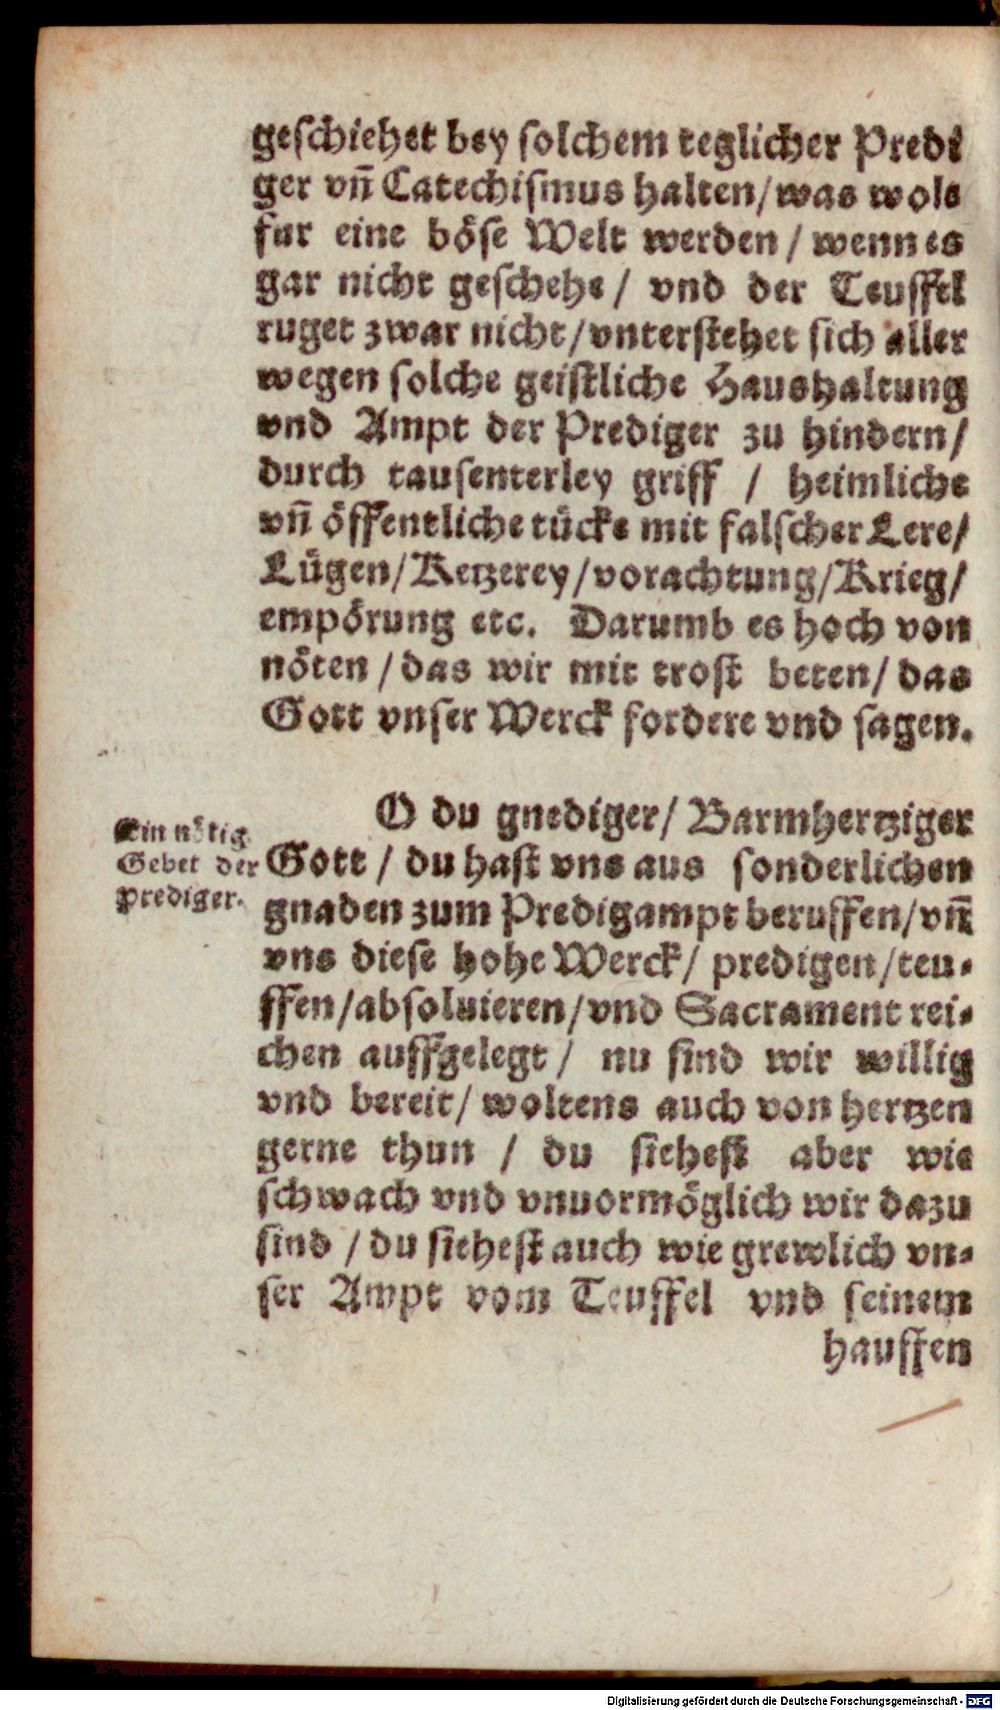 geschiehet bey solchem teglicher Predi
ger vñ Catechismus halten/was wols
fur eine böse Welt werden / wenn es
gar nicht geschehe / vnd der Teuffel
ruget zwar nicht/vnterstehet sich aller
wegen solche geistliche Haushaltung
vnd Ampt der Prediger zu hindern/
durch tausenterley griff / heimliche
vñ öffentliche tücke mit falscher Lere/
Lügen/Ketzerey/vorachtung/Krieg/
empörung etc. Darumb es hoch von
nöten / das wir mit trost beten/ das
Gott vnser Werck fordere vnd sagen.
O du gnediger/ Barmhertziger
Ein nötig
Gebet der
Prediger.
Gott / du hast vns aus sonderlichen
gnaden zum Predigampt beruffen/vñ
vns diese hohe Werck/ predigen/teu-
ffen/absoluieren/vnd Sacrament rei-
chen auffgelegt / nu sind wir willig
vnd bereit/ woltens auch von hertzen
gerne thun / du siehest aber wie
schwach vnd vnuormöglich wir dazu
sind / du siehest auch wie grewlich vn-
ser Ampt vom Teuffel vnd seinem
hauffen
Digitalisierung gefördert durch die Deutsche Forschungsgemeinschaft - DFG